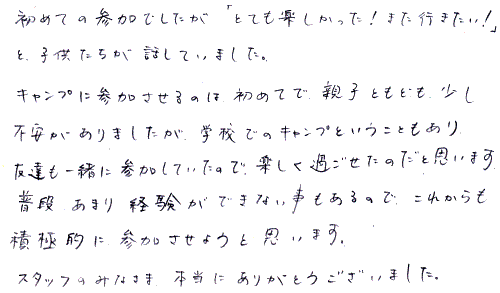 初めての参加でしたが「とても楽しかった！また行きたい！」
と、子供たちが話していました。
キャンプに参加させるのは初めてで、親子ともども、少し
不安がありましたが、学校でのキャンプということもあり、
友達も一緒に参加していたので、楽しく過ごせたのだと思います。
普段、あまり経験ができない事もあるので、これからも
積極的に参加させようと思います。
スタッフのみなさま、本当にありがとうございました。